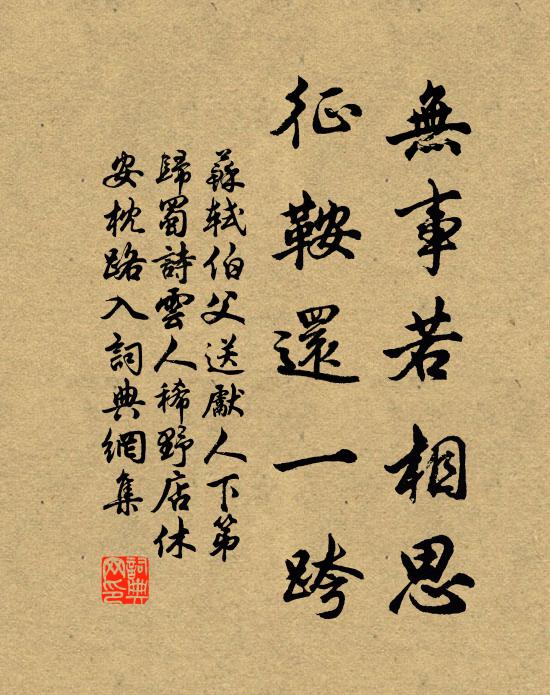 無事若相思
征鞍還一跨
蘇軾伯父送獻人下第
歸蜀詩雲人稀野店休
安枕路入詞典網集
詞典网印